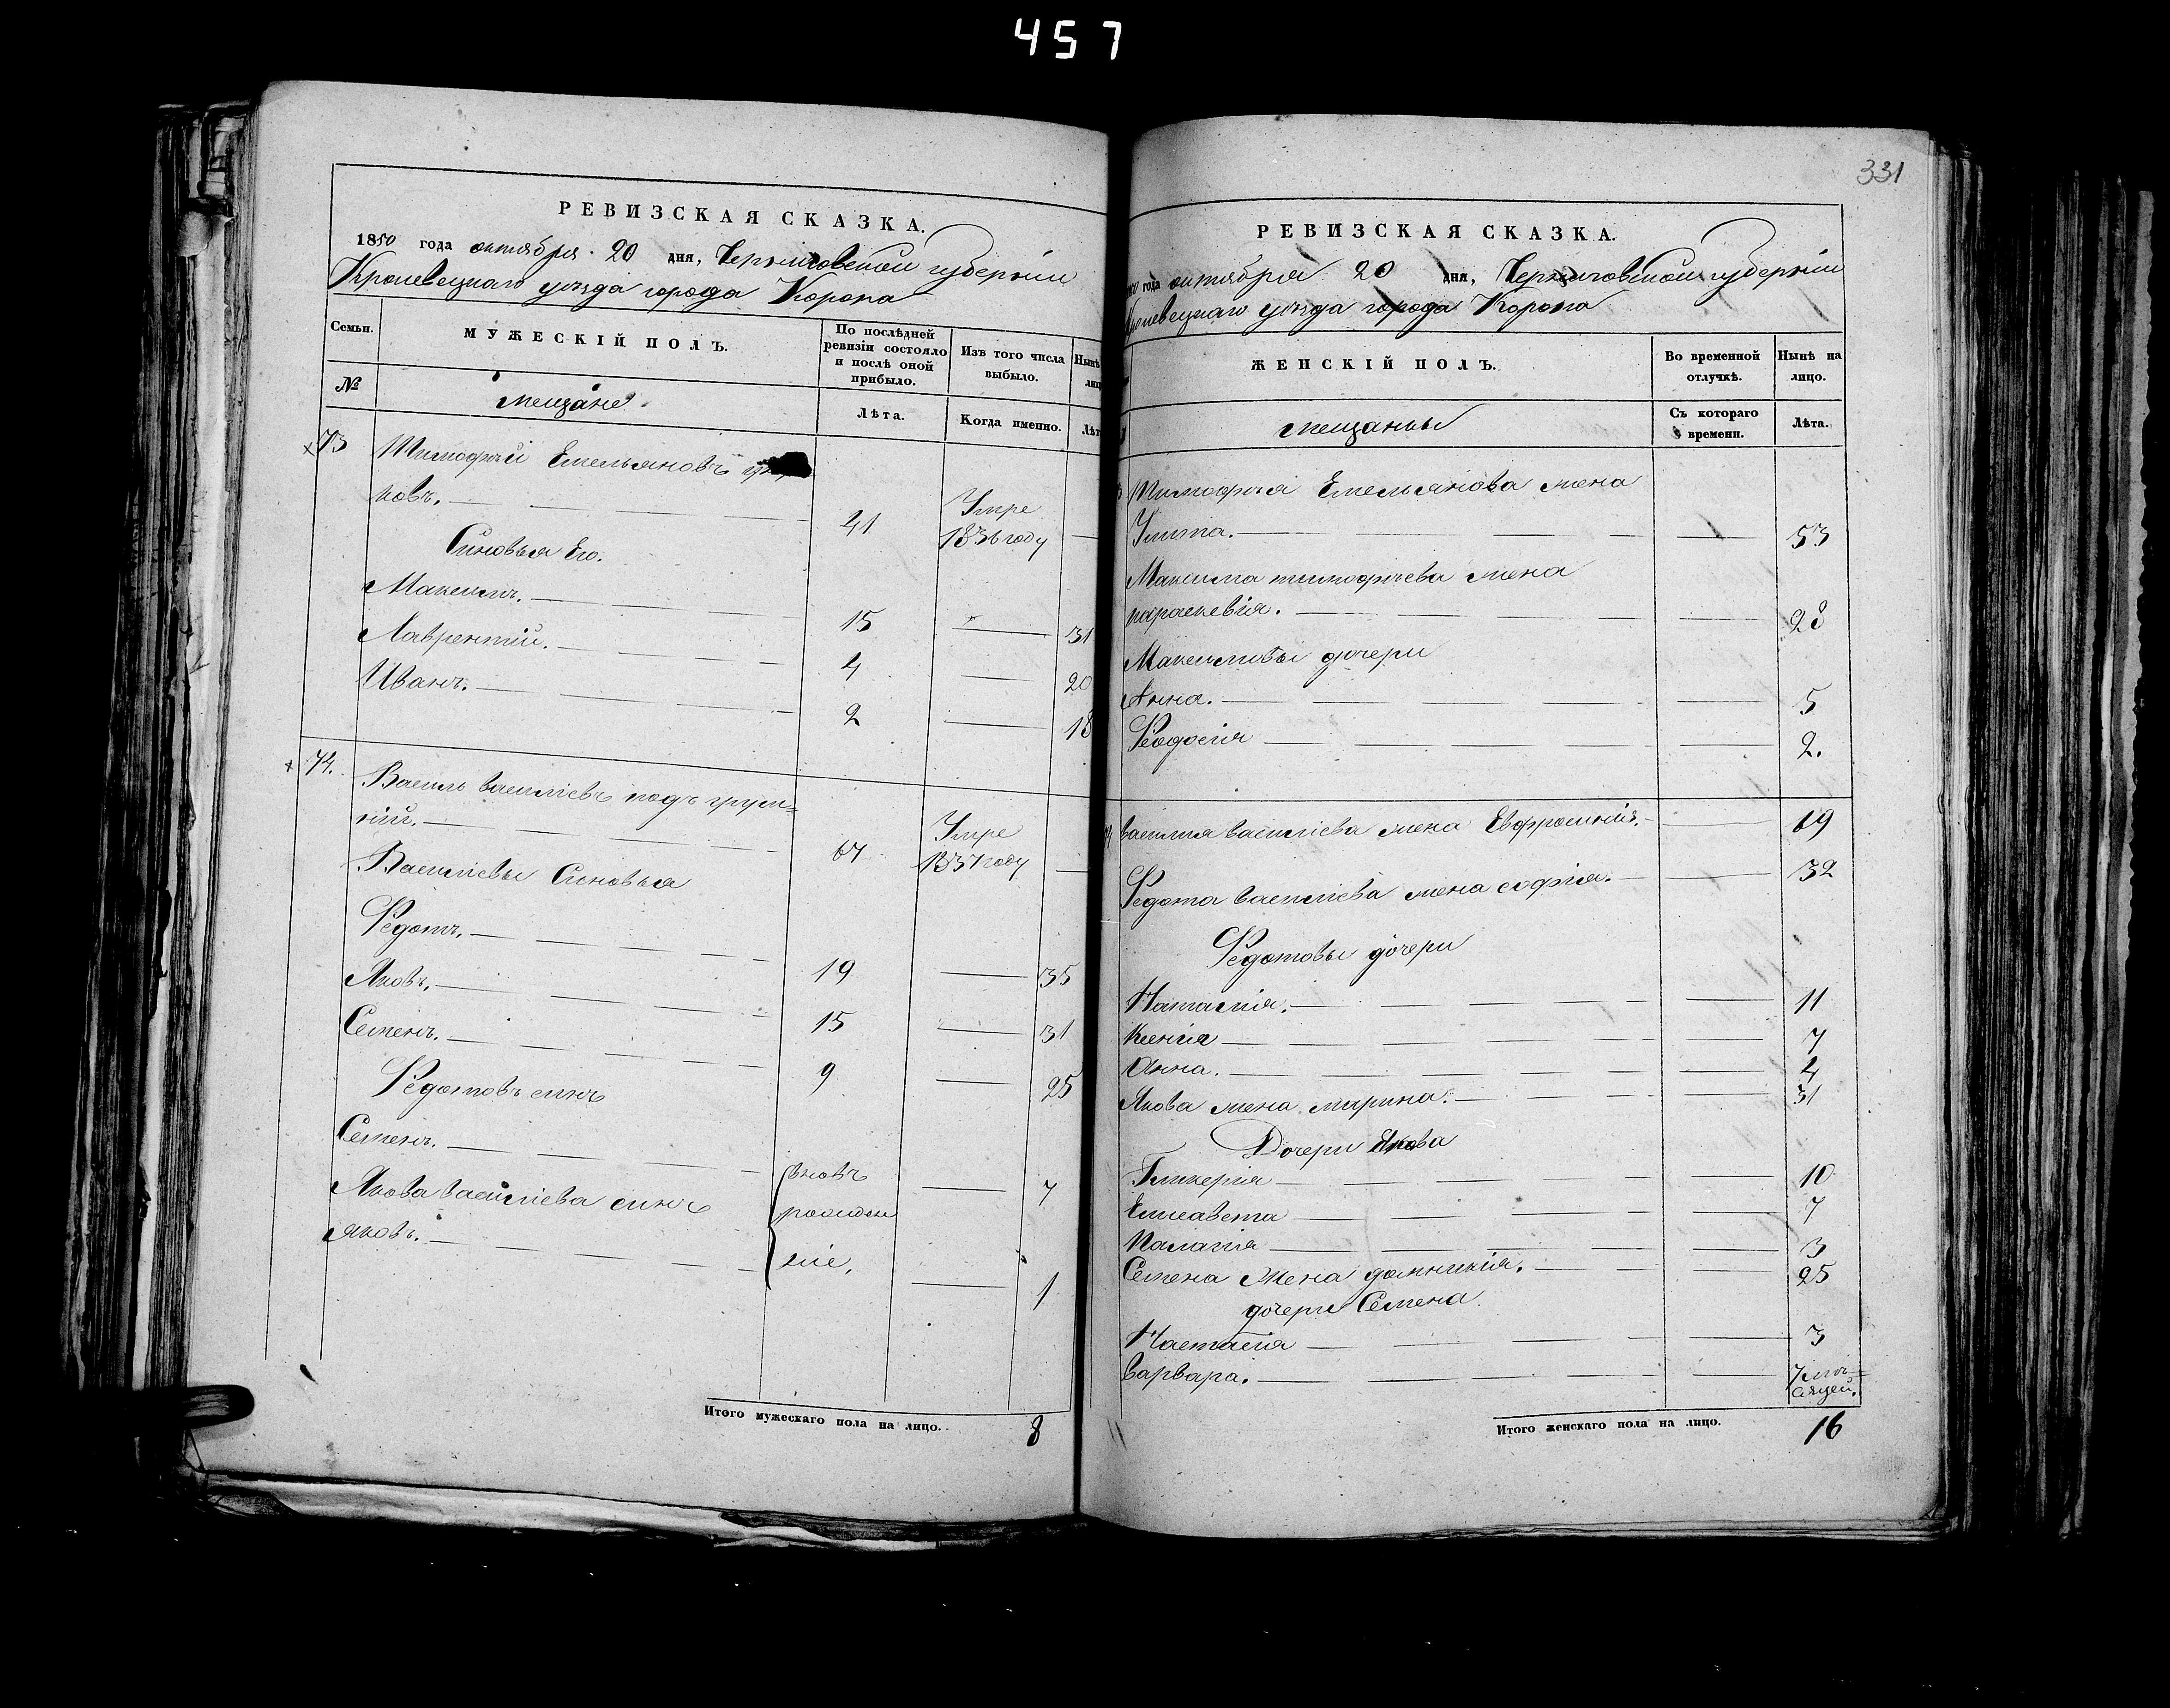 457
РЕВИЗСКАЯ СКАЗКА.
1850 года октября 20 дня, Черниговской губерніи
Кролевецкаго уезда города Коропа
Семьи.
МУЖЕСКІЙ ПОЛЪ.
По послѣдней ревизіи состояло и послѣ оной прибыло.
Изъ того числа выбыло.
Нынѣ
№
мещане.
Лѣта.
Когда именно.
73
Тимофѣй Емельяновъ
ковъ. 41 Умре 1836 году
Синовья Его.
Максимъ. 15 31
Лаврентій. 4 20
Иванъ. 2 18
74.
Василь Василіевъ подъ груш=
кій. 67 Умре 1837 году
Василіевы Синовья
Федотъ. 19 35
Яковъ. 15 31
Семенъ. 9 25
Федотовъ синъ
Семенъ. 7
вновь
Якова Василіева синъ
яковъ. 1
Итого мужескаго пола на лицо. 8
331
РЕВИЗСКАЯ СКАЗКА.
года октября 20 дня, Черниговской губерніи
Кролевецкаго уезда города Коропа
ЖЕНСКІЙ ПОЛЪ.
Во временной отлучкѣ.
Нынѣ на лицо.
мещанки
Съ котораго времени.
Лѣта.
Тимофѣя Емельянова жена
Улита. 53
Максима тимофѣева жена
параскевія. 28
Максимовы дочери
Анна. 5
Феодосія 2.
74
Василия Василіева жена Евфросинія. 69
Федота Василіева жена софія. 32
Федотовы дочери
Наталія. 11
Ксенія 7
Анна. 4
Якова жена марина. 31
Дочери Якова
Гликерія 10
Елисавета 7
Палагія 3
Семена жена домникія. 25
дочери Семена
Настасія 3
Варвара. 7 мѣ=
сяцей.
Итого женскаго пола на лицо. 16